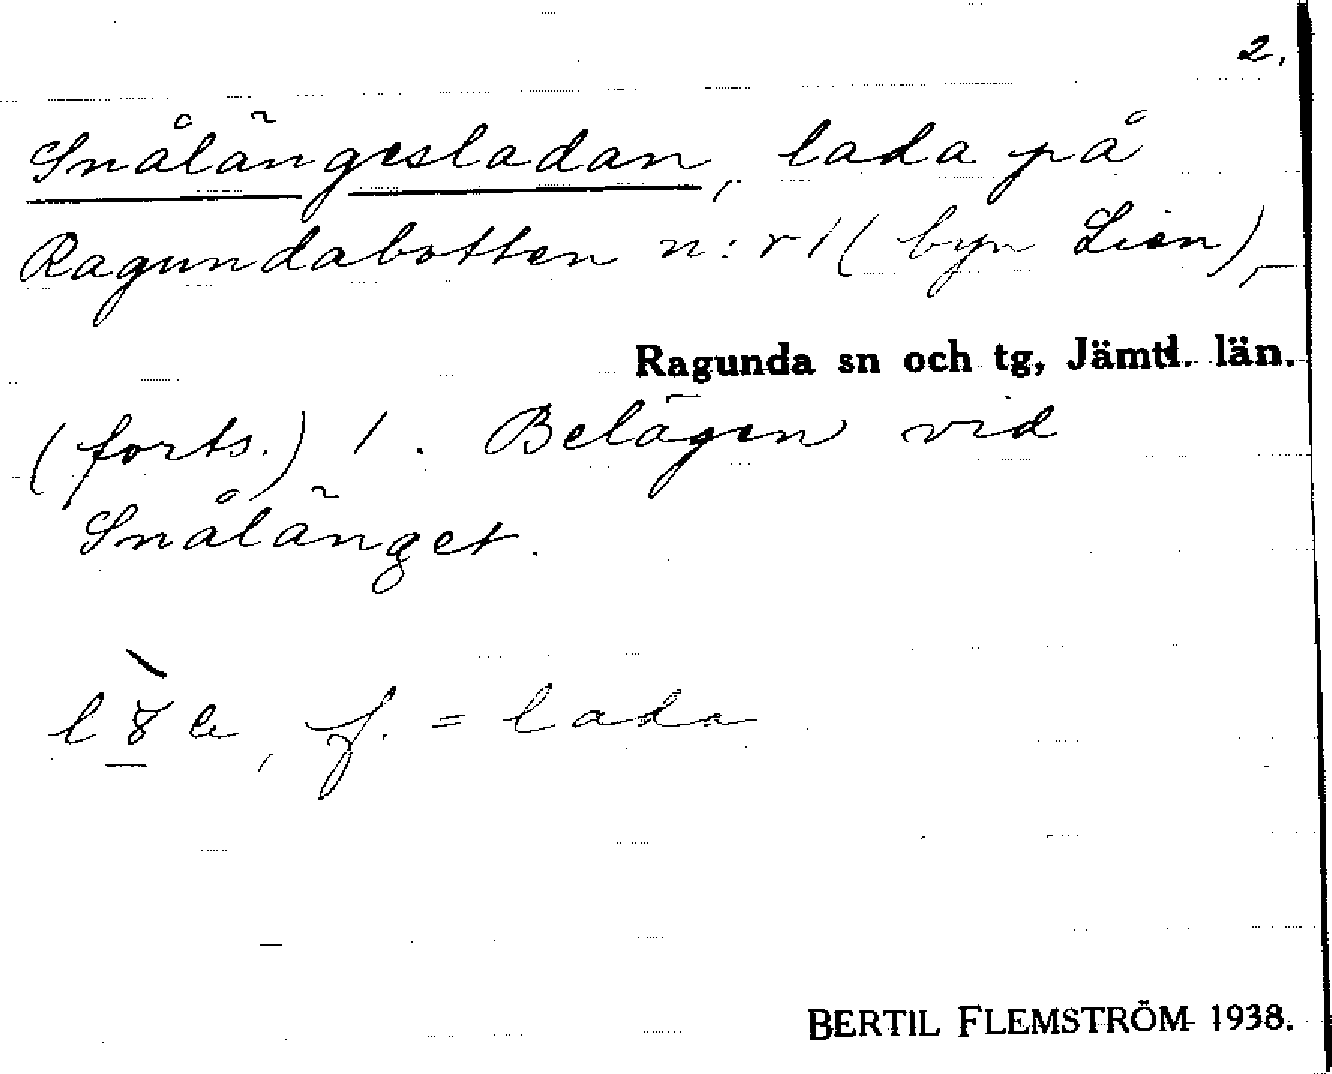 2.
Snålängesladan, lada på
Ragundabotten n:r 1 (byn Lien),
Ragunda sn och tg, Jämtl. län.
(forts.) 1. Belägen vid
Snålänget.
f. = lada
BERTIL FLEMSTRÖM 1938.